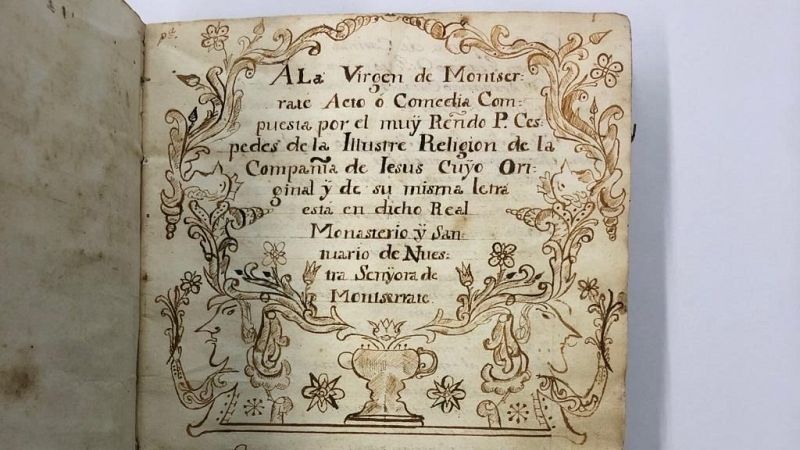 A La Virgen de Montser-
rate Acto ô Comedia Com-
puesta por el muÿ Ren̄do P. Ces
pedes de la Illustre Religion de la
Compañia de Iesus Cuÿo Ori-
ginal ÿ de su misma letra
està en dicho Real
Monasterio ÿ San-
tuario de Nues-
tra Senÿora de
Montserrate.